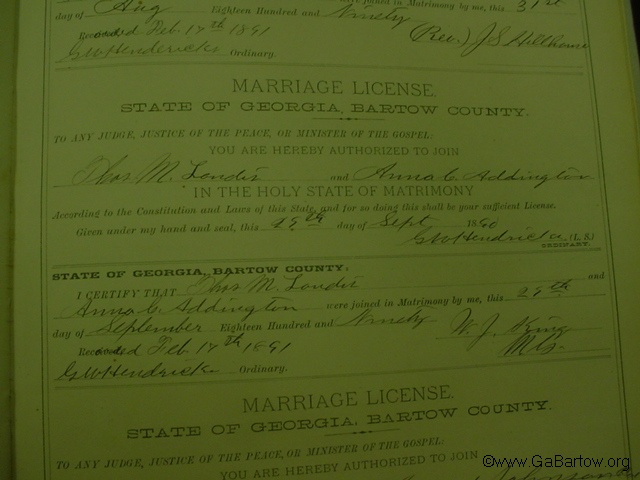 were joined in Matrimony by me, this 31st
day of Aug Eighteen Hundred and Ninety
Recorded Feb. 17th 1891 (Rev.) J S Hillhouse
GW Hendricks Ordinary.
MARRIAGE LICENSE.
STATE OF GEORGIA, BARTOW COUNTY.
TO ANY JUDGE, JUSTICE OF THE PEACE, OR MINISTER OF THE GOSPEL:
YOU ARE HEREBY AUTHORIZED TO JOIN
Thos M. Landis and Anna C Addington
IN THE HOLY STATE OF MATRIMONY
According to the Constitution and Laws of this State, and for so doing this shall be your sufficient License.
Given under my hand and seal, this 29th day of Sept 1890
GW Hendricks (L.S.)
ORDINARY.
STATE OF GEORGIA, BARTOW COUNTY.
I CERTIFY THAT Thos M. Landis and
Anna C. Addington were joined in Matrimony by me, this 29th
day of September Eighteen Hundred and Ninety
W. J. King
Recorded Feb 17th 1891 M.G.
GW Hendricks Ordinary.
MARRIAGE LICENSE.
STATE OF GEORGIA, BARTOW COUNTY.
TO ANY JUDGE, JUSTICE OF THE PEACE, OR MINISTER OF THE GOSPEL:
YOU ARE HEREBY AUTHORIZED TO JOIN
©www.GaBartow.org